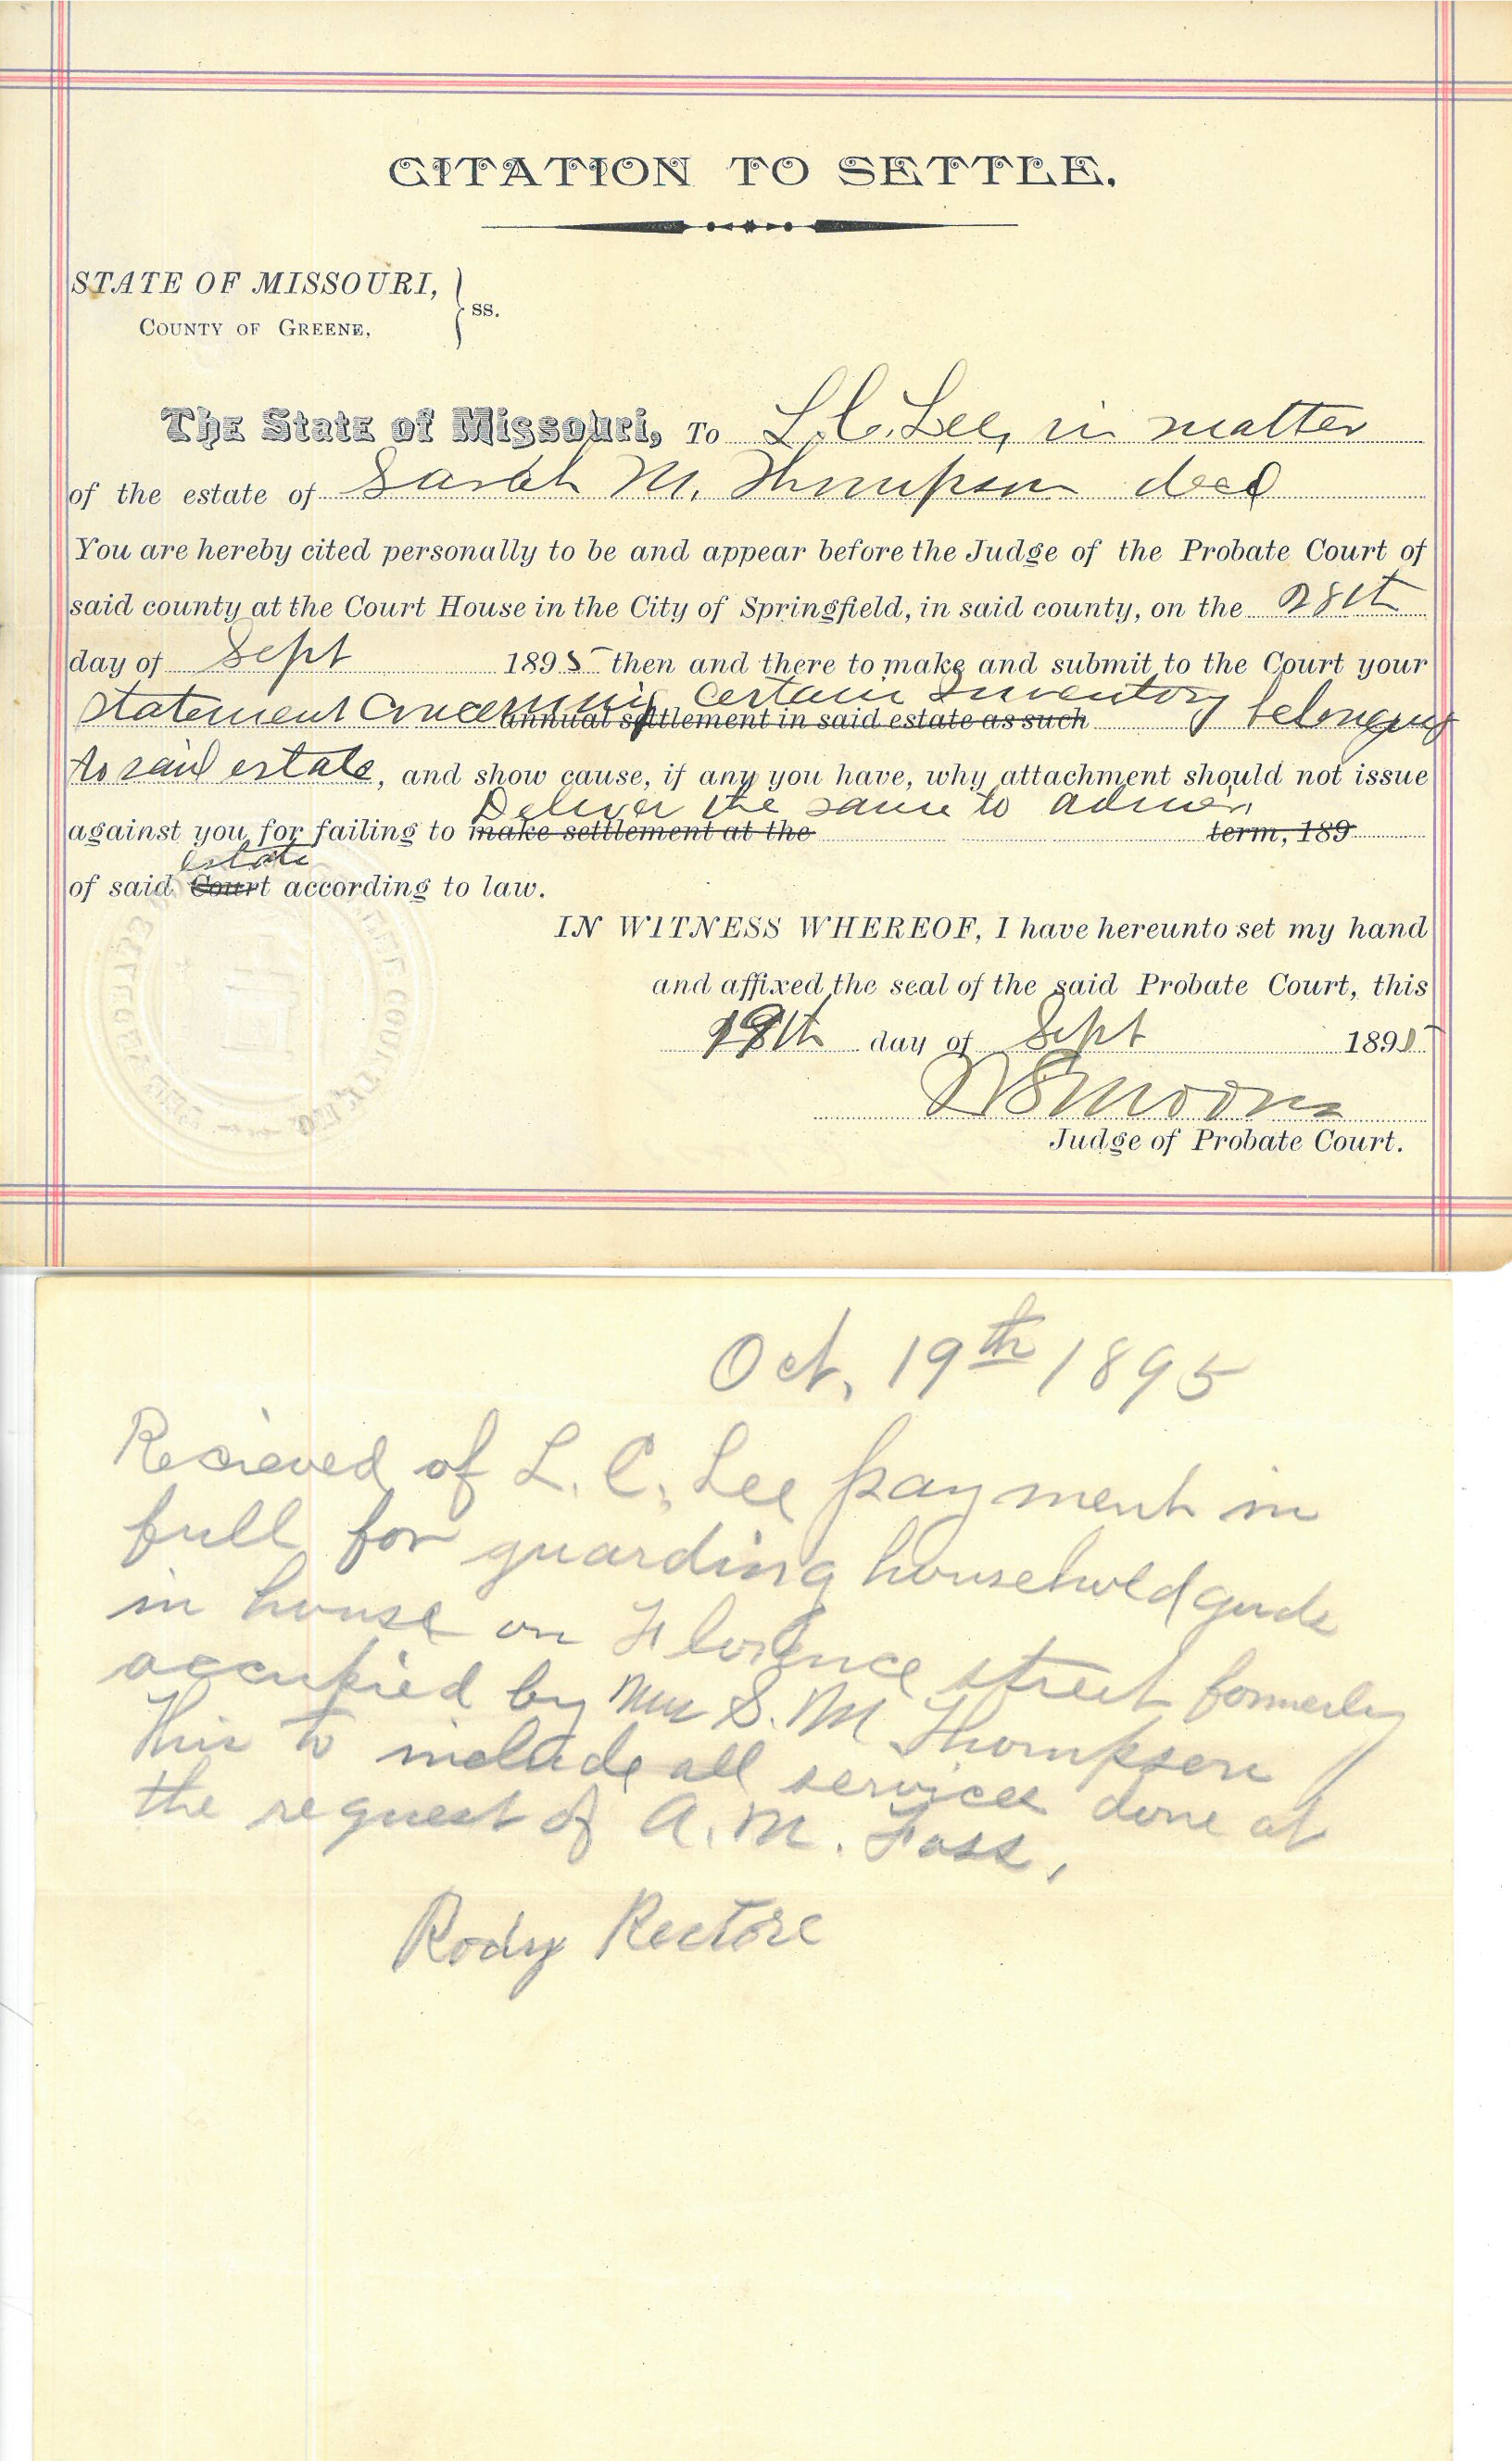 CITATION TO SETTLE.
STATE OF MISSOURI,
COUNTY OF GREENE,
ss.
The State of Missouri, To L. C. Lee, in matter
of the estate of Sarah M. Thompson decd
You are hereby cited personally to be and appear before the Judge of the Probate Court of
said county at the Court House in the City of Springfield, in said county, on the 28th
day of Sept 1895 then and there to make and submit to the Court your
statement concerning certain Inventory belonging
annual settlement in said estate as such
to said estate, and show cause, if any you have, why attachment should not issue
Deliver the same to admr,
against you for failing to make settlement at the term, 189
estate
of said Court according to law.
IN WITNESS WHEREOF, I have hereunto set my hand
and affixed the seal of the said Probate Court, this
day of Sept 1895
Judge of Probate Court.
Oct. 19th 1895
Recieved of L. C. Lee payment in
full for guarding household goods
in house on Florence street formerly
occupied by Mrs S. M Thompson
This to include all services done at
the request of A. M. Foss.
Rody Rectore